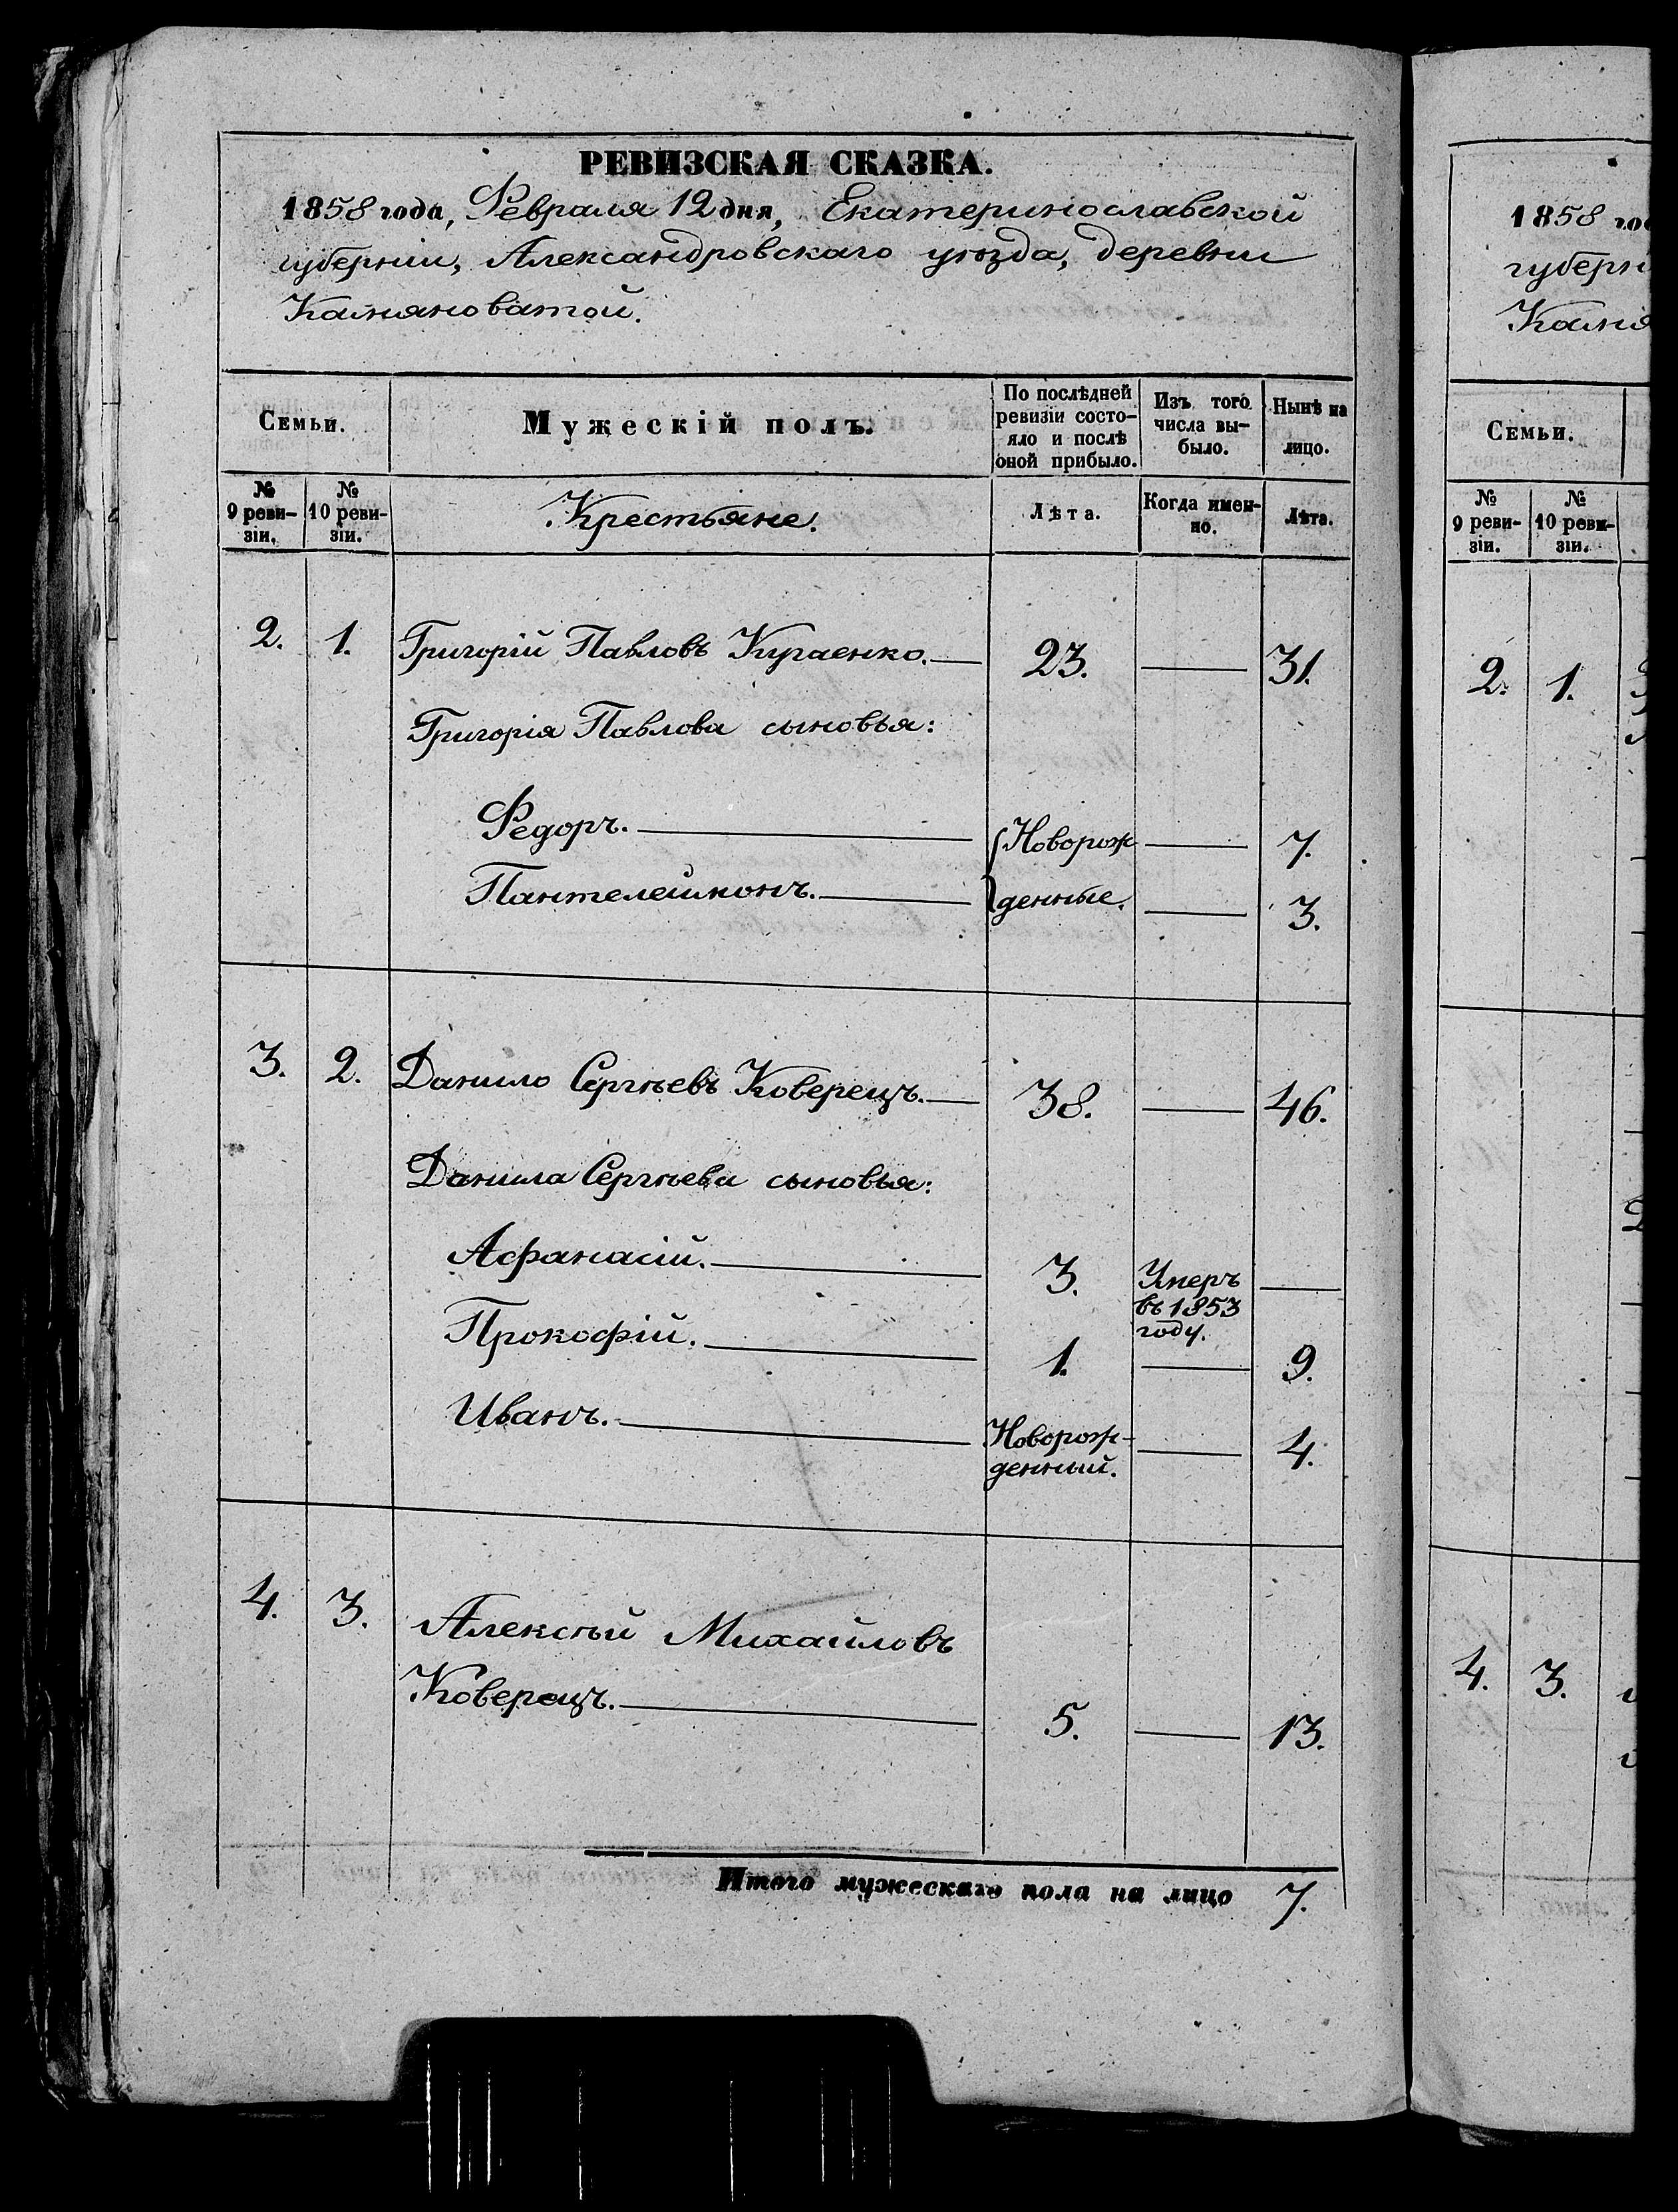 РЕВИЗСКАЯ СКАЗКА.
1858 года, Февраля 12 дня, Екатеринославской
губерніи, Александровскаго уѣзда, деревни
Камяноватой.
Семьи.
Мужескій полъ.
По послѣдней
ревизіи состо-
яло и послѣ
оной прибыло.
Изъ того
числа вы-
было.
Нынѣ на
лицо.
№
9 реви-
зіи.
№
10 реви-
зіи.
Крестьяне.
Лѣта.
Когда имен-
но.
Лѣта.
2. 1. Григорій Павловъ Кугаенко. 23. 31.
Григорія Павлова сыновья:
Федоръ. Новорож 7.
Пантелеимонъ. денные. 3.
3. 2. Данило Сергѣевъ Коверецъ. 38. 46.
Данила Сергѣева сыновья:
Афанасій. 3. Умеръ
въ 1853
году.
Прокофій. 1. 9.
Иванъ. Новорож-
денный. 4.
4. 3. Алексѣй Михайловъ
Коверецъ. 5. 13.
Итого мужескаго пола на лицо 7.
1858 год
губерн
Камя
Семьи.
№
9 реви-
зіи.
№
10 реви-
зіи.
2. 1.
4. 3.